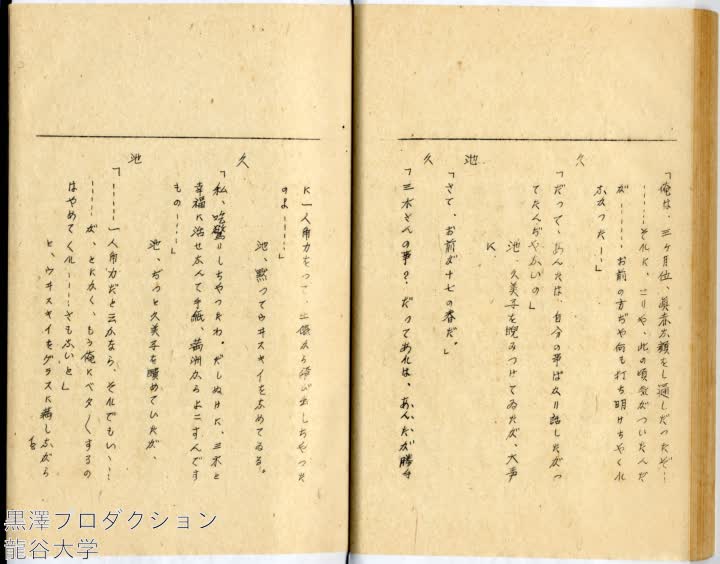 「俺は、三ヶ月位、眞赤な顔をし通しだつたぞ…
……それに、こりや、此の頃気がついたんだ
が………お前の方ぢや何も打ち明けちやくれ
なかつた……」
久
「だつて、あんたは、自分の事ばかり話したがつ
てたんぢやないの」
池
池、久美子を睨みつけてゐたが、大声
に、
「さて、お前が十七の春だ。」
久
「三木さんの事？だつてあれは、あんたが勝手
に一人角力をつて、二階から飛び出しちやつた
のよ………」
池、黙つてウヰスキイをなめてゐる。
久
「私、吃驚しちやつたわ。だしぬけに、三木と
幸福に治せなんて手紙、満洲からよこすんです
もの………」
池、ぢつと久美子を瞶めていたが、
池
「………」一人角力だと云ふなら、それでもいゝ…
……が、とにかく、もう俺にベタ〳〵するの
はやめてくれ………さもないと」
と、ウヰスキイをグラスに満しながら